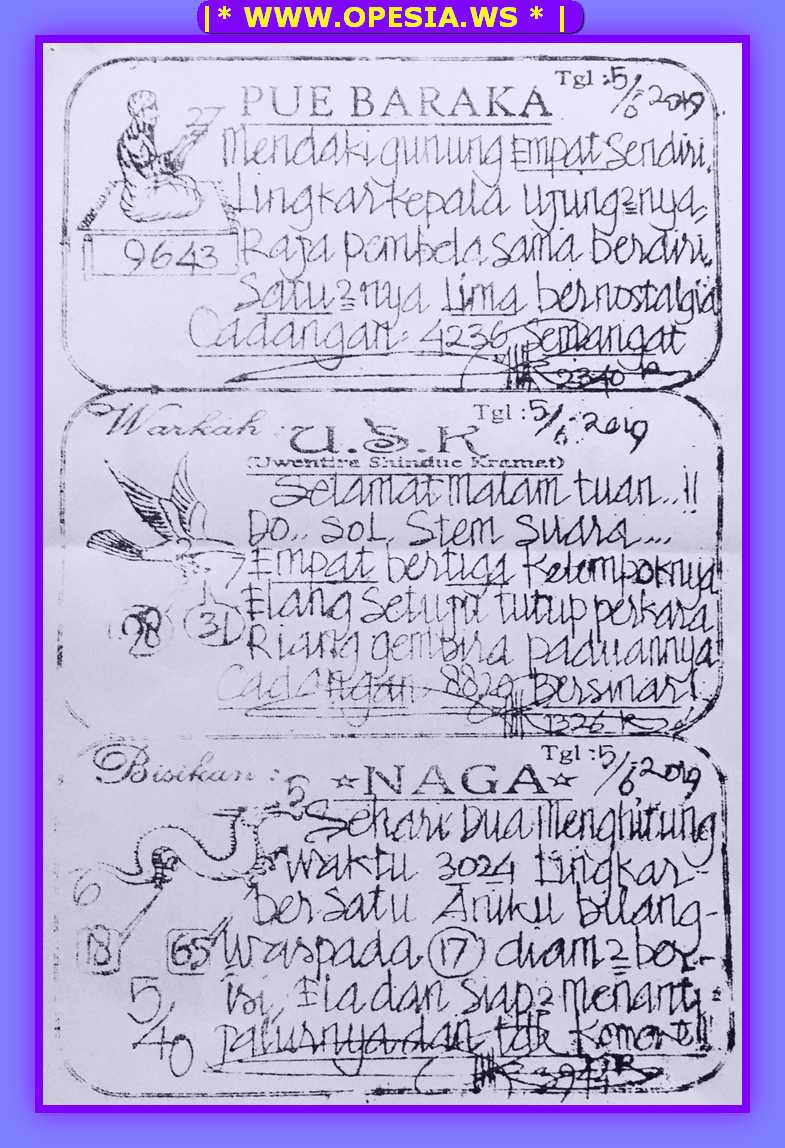 |* WWW.OPESIA.WS * |
PUE BARAKA
Tgl : 5/6 2019
27
Mendaki gunung Empat Sendiri.
Lingkar kepala Ujung2nya=
9643
Raja pembela sama berdiri.
Satu2nya Lima bernostalgia
Cadangan= 4236 Semangat
2340
Warkah :
U.S.K
Tgl : 5/6 2019
(Uwentira Shindue Kramat)
Selamat malam tuan..!!
Do.. SOL. Stem Suara....
Empat bertiga Kelompoknya
7
98
31
Elang Setuju tutup perkara
Riang gembira paduannya
Cadangan 8829 Bersinar!
1326
Bisikan :
☆NAGA☆
Tgl : 5/6 2019
5
Sehari Dua Menghitung
Waktu 3024 Lingkar-
6
ber Satu Aniku bilang-
18
65
Waspada. 17 diam2 ber-
isi, Ia dan Siap2 Menanti=
5/40
jalurnya dan tdk Koment!!